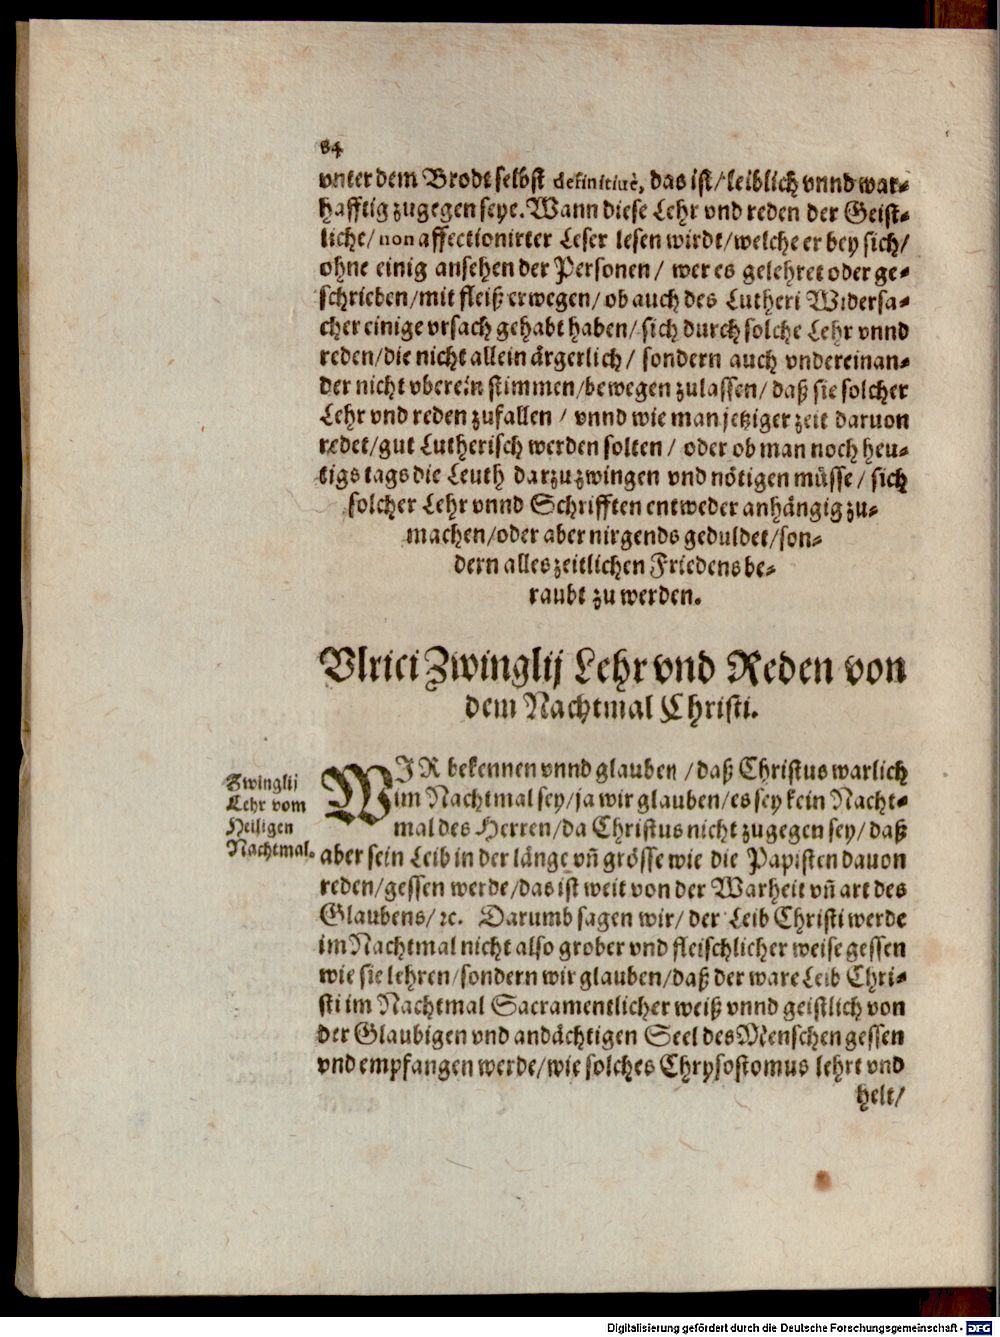 84
vnter dem Brodt selbst definitiuè, das ist/ leiblich vnnd war-
hafftig zugegen seye. Wann diese Lehr vnd reden der Geist-
liche/ non affectionirter Leser lesen wirdt/ welche er bey sich/
ohne einig ansehen der Personen/ wer es gelehret oder ge-
schrieben/ mit fleiß erwegen/ ob auch des Lutheri Widersa-
cher einige vrsach gehabt haben/ sich durch solche Lehr vnnd
reden/ die nicht allein ärgerlich/ sondern auch vndereinan-
der nicht vberein stimmen/ bewegen zulassen/ daß sie solcher
Lehr vnd reden zufallen / vnnd wie man jetziger zeit daruon
redet/ gut Lutherisch werden solten / oder ob man noch heu-
tigs tags die Leuth darzu zwingen vnd nötigen müsse/ sich
solcher Lehr vnnd Schrifften entweder anhängig zu-
machen/ oder aber nirgends geduldet/ son-
dern alles zeitlichen Friedens be-
raubt zu werden.
Vlrici Zwinglij Lehr vnd Reden von
dem Nachtmal Christi.
Zwinglij
Lehr vom
Heiligen
Nachtmal.
WIR bekennen vnnd glauben / daß Christus warlich
im Nachtmal sey/ ja wir glauben/ es sey kein Nacht-
mal des Herren/ da Christus nicht zugegen sey/ daß
aber sein Leib in der länge vñ grösse wie die Papisten dauon
reden/ gessen werde/ das ist weit von der Warheit vñ art des
Glaubens/ ꝛc. Darumb sagen wir/ der Leib Christi werde
im Nachtmal nicht also grober vnd fleischlicher weise gessen
wie sie lehren/ sondern wir glauben/ daß der ware Leib Chri-
sti im Nachtmal Sacramentlicher weiß vnnd geistlich von
der Glaubigen vnd andächtigen Seel des Menschen gessen
vnd empfangen werde/ wie solches Chrysostomus lehrt vnd
helt/
Digitalisierung gefördert durch die Deutsche Forschungsgemeinschaft - DFG